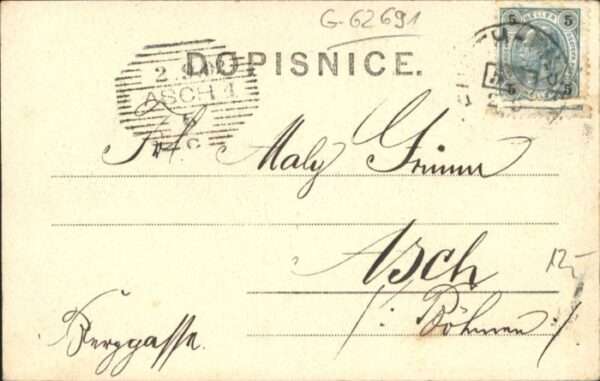 G-62691
DOPISNICE.
ASCH 1
5 HELLER 5
5 5
Frl. Maly Grimm
Asch
12-
/: Böhmen :/
Berggasse.